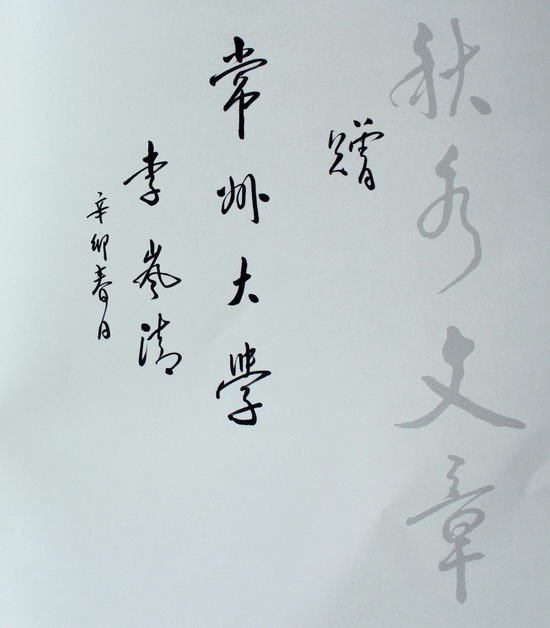 秋水文章
赠
常州大学
李岚清
辛卯春日